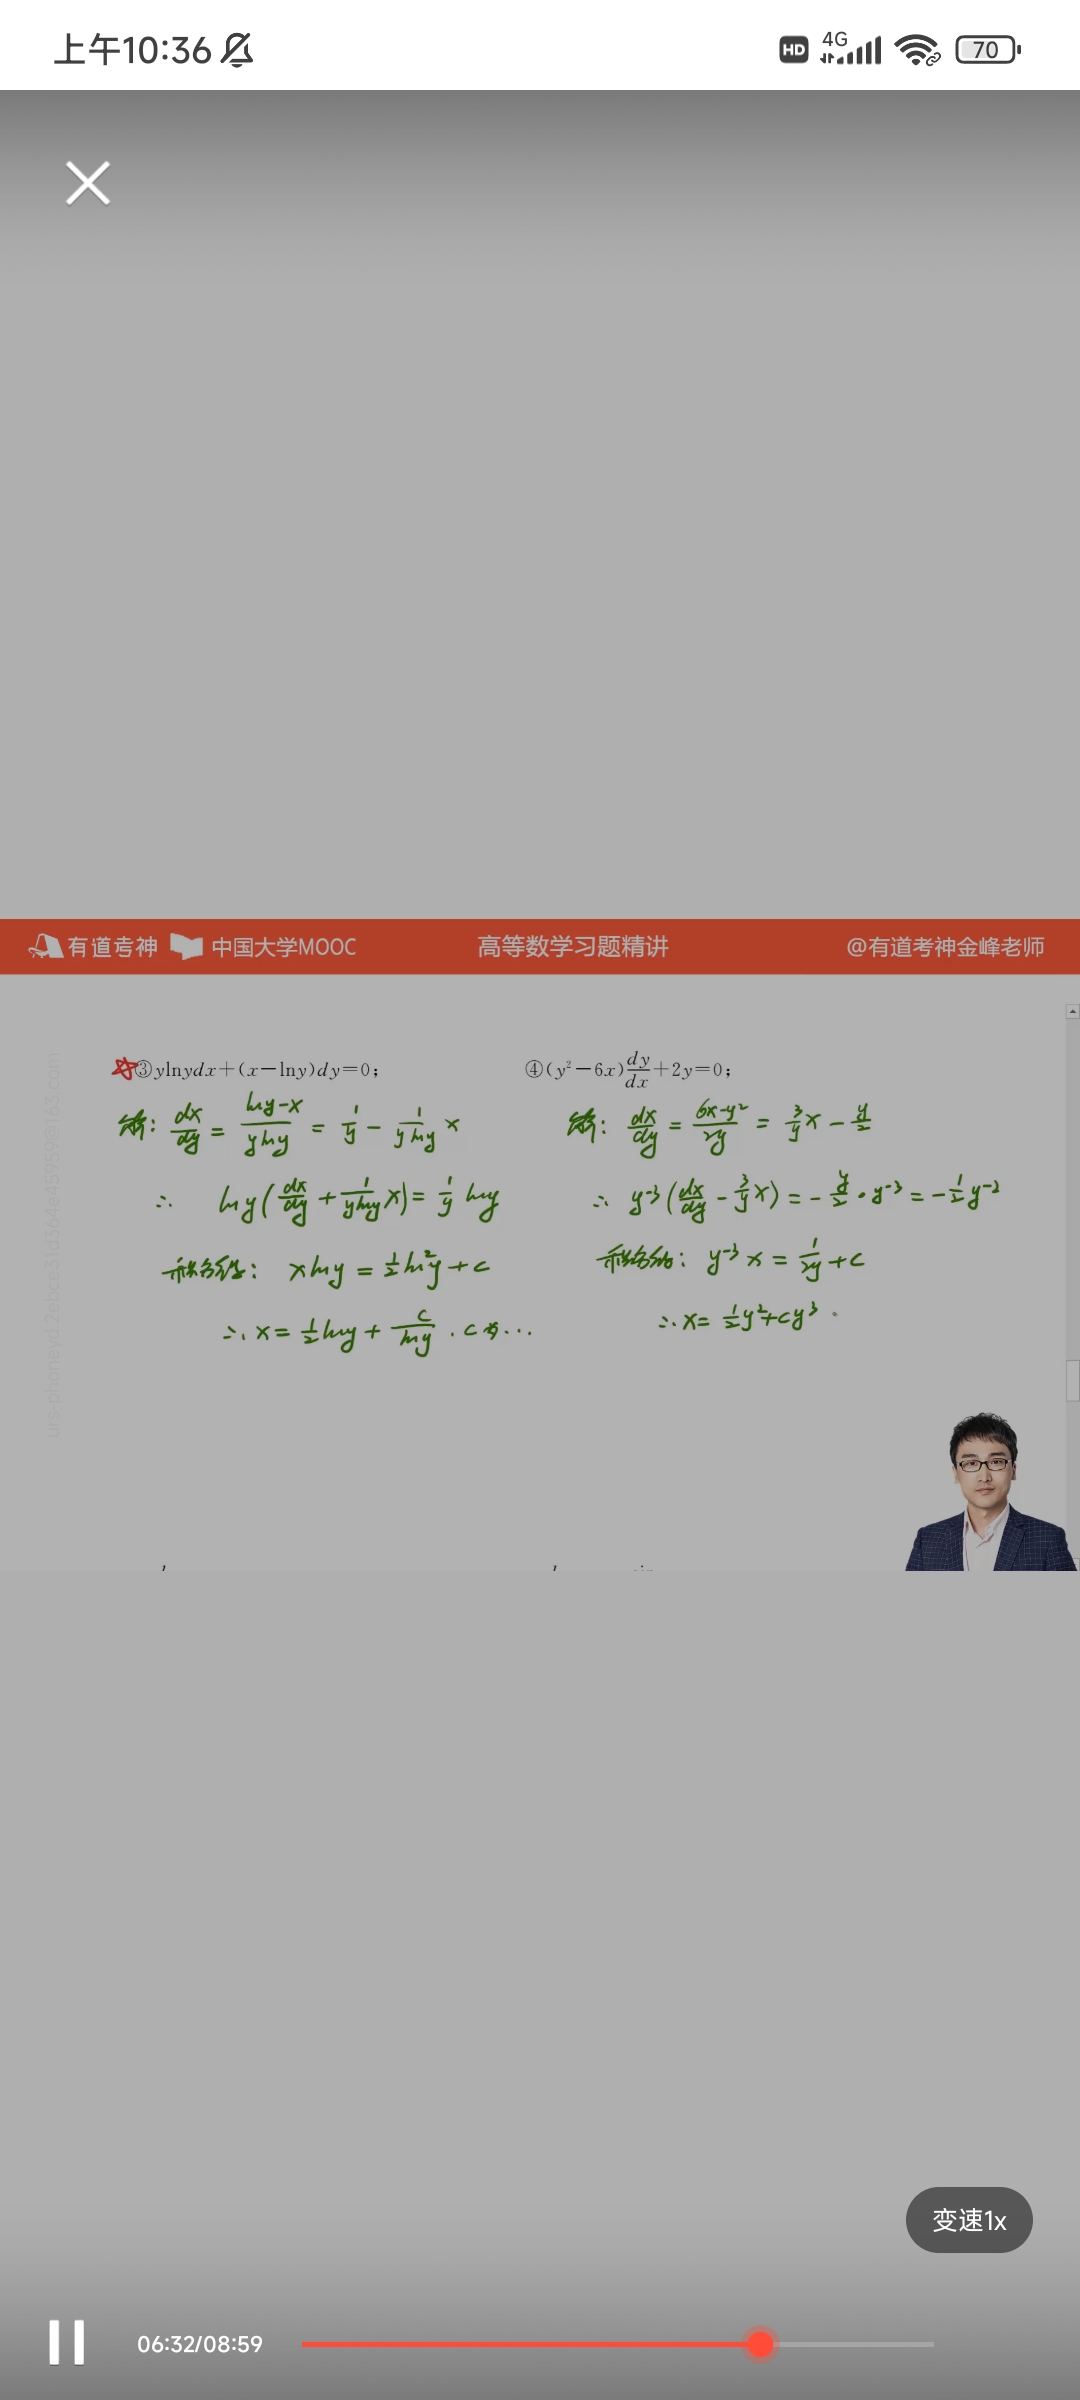 上午10:36 HD 4G 70
有道考神 中国大学MOOC 高等数学习题精讲 @有道考神金峰老师
③ylnydx+(x−lny)dy=0;
解: dx/dy = (lny−x)/(ylny) = 1/y − 1/(ylny) x
∴ lny(dx/dy + 1/(ylny) x) = 1/y lny
两边积分: xlny = 1/2 ln²y + c
∴ x = 1/2 lny + c/lny . c为...
④(y²−6x)dy/dx+2y=0;
解: dx/dy = (6x−y²)/(2y) = 3/y x − y/2
∴ y⁻³(dx/dy − 3/y x) = −y/2 · y⁻³ = −1/2 y⁻²
y⁻³x = 1/(2y) + c
∴ x = 1/2 y² + cy³
变速1x
06:32/08:59